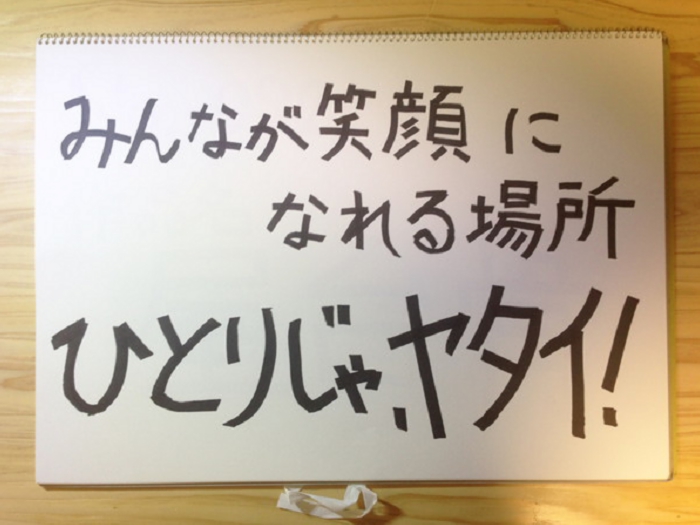 みんなが笑顔に
なれる場所
ひとりじゃ、ヤタイ!